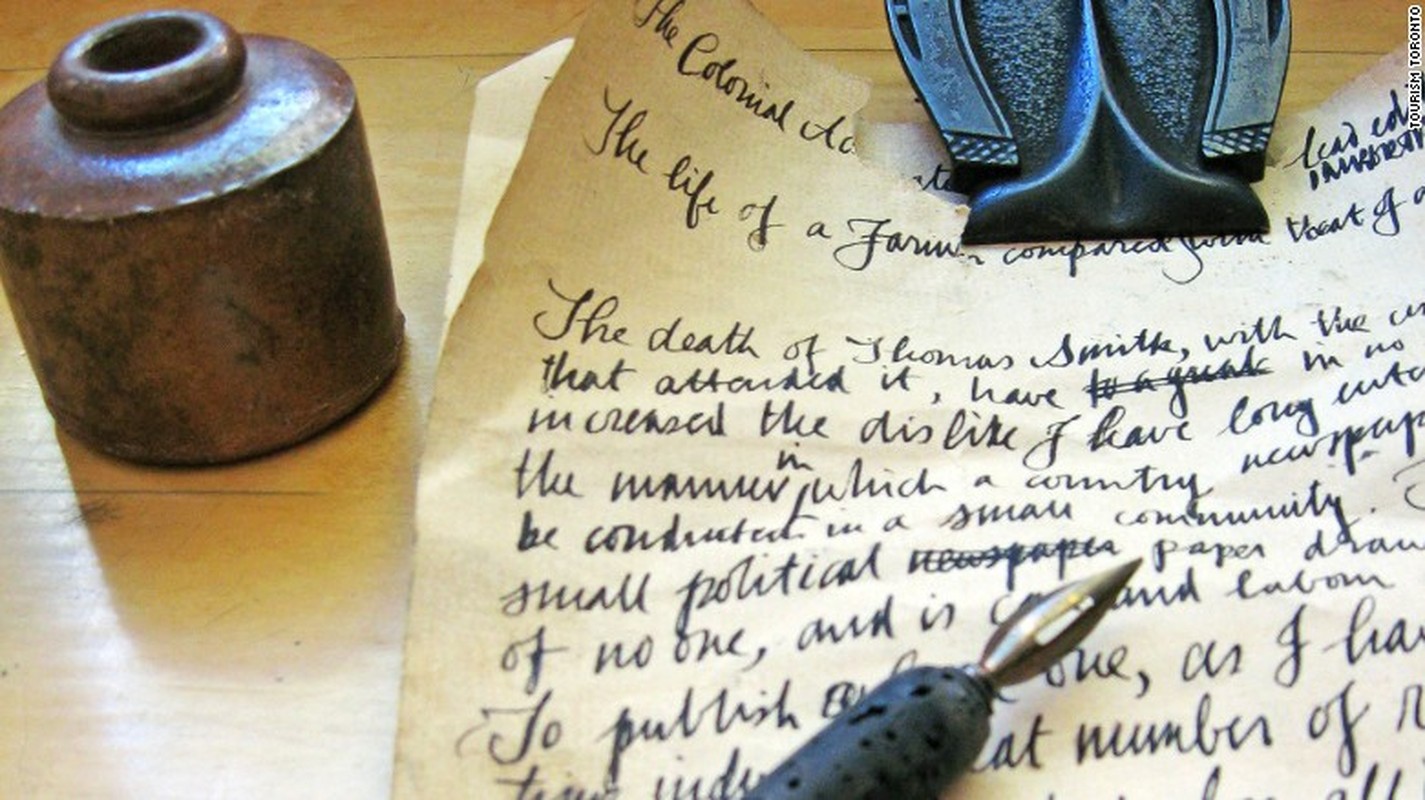 The Colonial Ad
The life of a Farm compared that of a
lead ed
The death of Thomas Smith, with the
that attended it, have to a great in no
increased the dislike I have long
the manner in which a country newspap
be conducted in a small community.
small political newspaper paper draw
of no one, and is and labour
one, as I ha
To publish at number of
all
TOURISM TORONTO